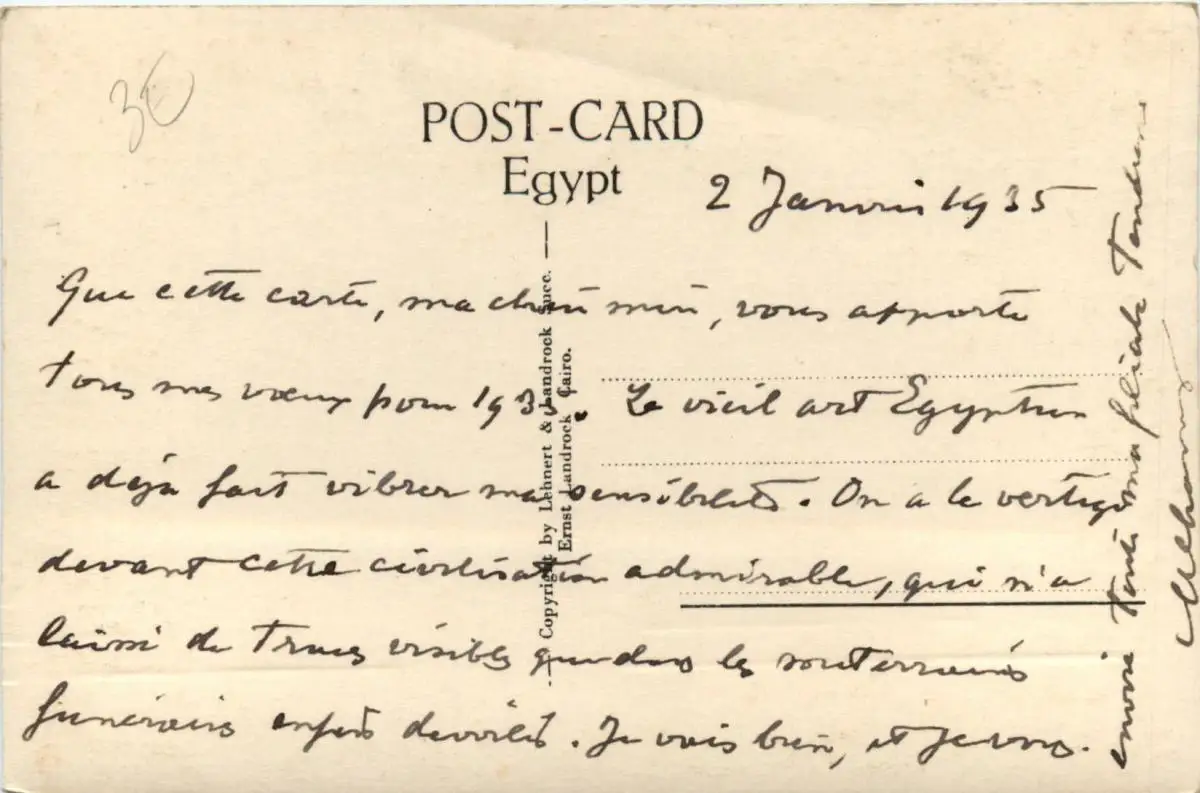 3€
POST-CARD
Egypt
2 Janvier 1935
Que cette carte, ma chère mère, vous apporte
tous mes vœux pour 1935. Le vieil art Egyptien
a déjà fait vibrer ma sensibilité. On a le vertige
devant cette civilisation admirable, qui n'a
laissé de traces visibles que dans les souterrains
funéraires enfin dévoilés. Je vais bien, et je vous
envoie toute ma filiale tendresse
Copyright by Lehnert & Landrock Succ.
Ernst Landrock Cairo.